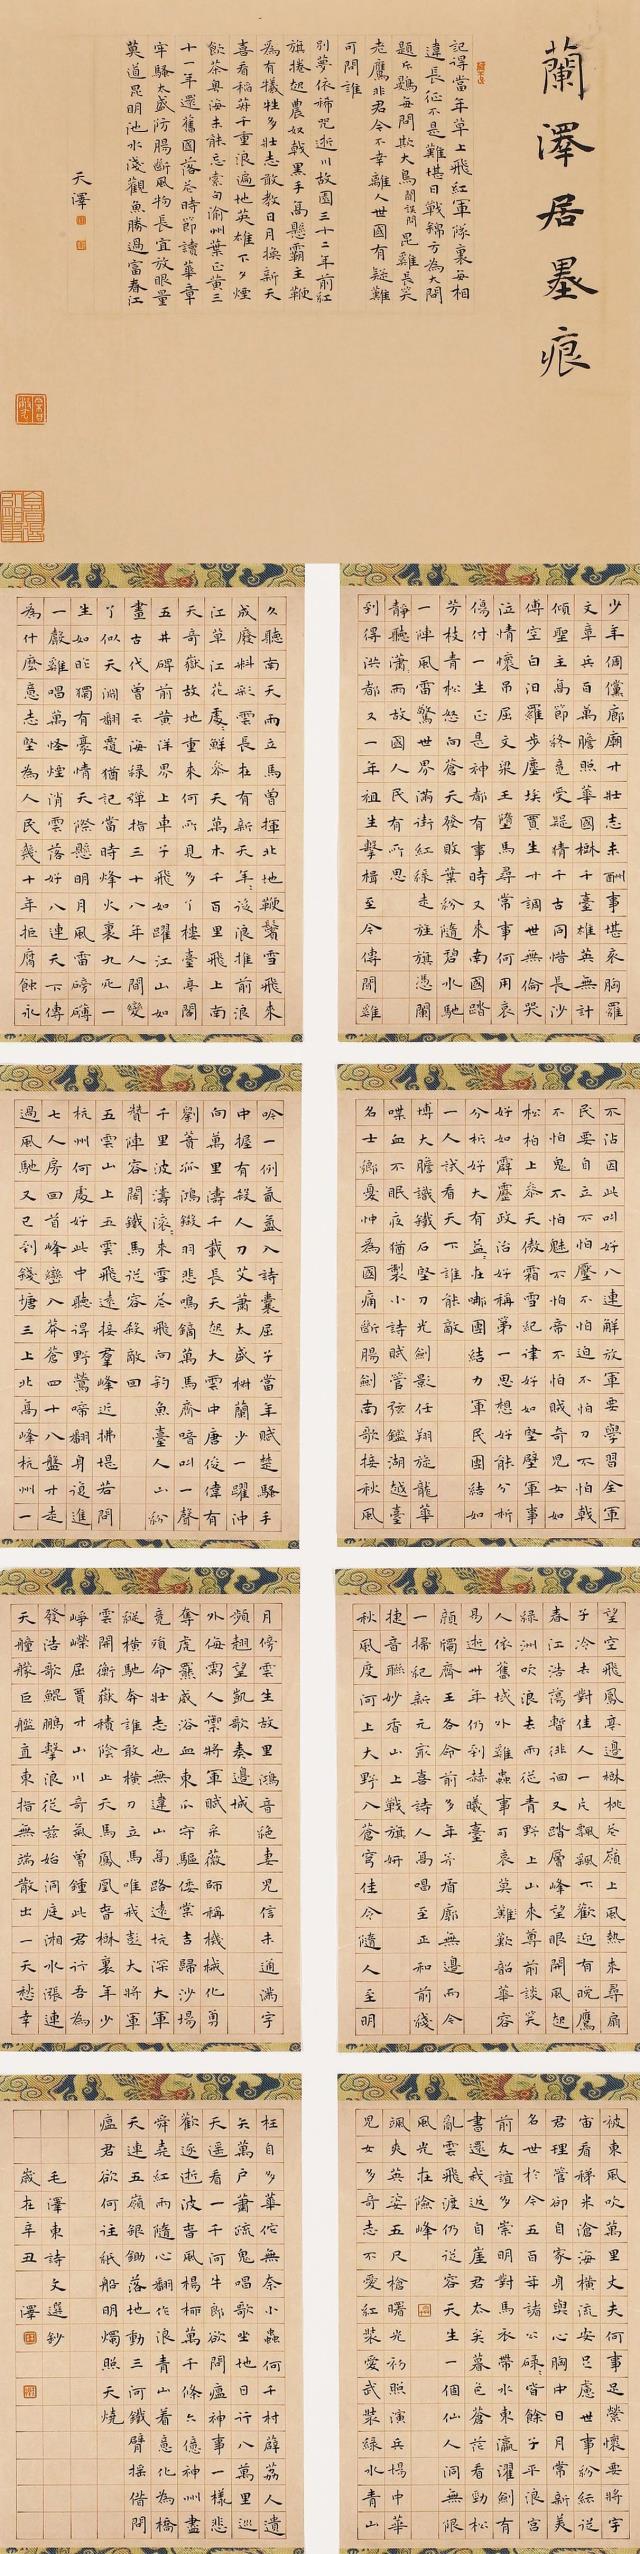 蘭澤居墨痕
記得當年草上飛紅軍隊裏每相
違長征不是難堪日戰錦方為大問
題斥鷃每聞欺大鳥聞誤問昆雞長笑
老鷹非君今不幸離人世國有疑難
可問誰
別夢依稀咒逝川故園三十二年前紅
旗捲起農奴戟黑手高懸霸主鞭
為有犧牲多壯志敢教日月換新天
喜看稻菽千重浪遍地英雄下夕煙
飲茶粵海未能忘索句渝州葉正黃三
十一年還舊國落花時節讀華章
牢騷太盛防腸斷風物長宜放眼量
莫道昆明池水淺觀魚勝過富春江
天澤
少年倜儻廊廟才壯志未酬事堪哀胸羅
文章兵百萬膽照華國樹千臺雄英無計
傾聖主高節終竟受疑猜千古同惜長沙
傅空白汨羅步塵埃賈生才調世無倫哭
泣情懷弔屈文梁王墮馬尋常事何用哀
傷付一生正是神都有事時又來南國踏
芳枝青松怒向蒼天發敗葉紛隨碧水馳
一陣風雷驚世界滿街紅綠走旌旗憑闌
靜聽瀟〻雨故國人民有所思
到得洪都又一年祖生擊楫至今傳聞雞
久聽南天雨立馬曾揮北地鞭鬢雪飛來
成廢料彩雲長在有新天年〻後浪推前浪
江草江花處〻鮮參天萬木千百里飛上南
天奇嶽故地重來何所見多了樓臺亭閣
五井碑前黃洋界上車子飛如躍江山如
畫古代曾云海綠彈指三十八年人間變
了似天淵翻覆猶記當時烽火裏九死一
生如昨獨有豪情天際懸明月風雷磅礴
一聲雞唱萬怪煙消雲落好八連天下傳
為什麼意志堅為人民幾十年拒腐蝕永
不沾因此叫好八連解放軍要學習全軍
民要自立不怕壓不怕迫不怕刀不怕戟
不怕鬼不怕魅不怕帝不怕賊奇兒女如
松柏上參天傲霜雪紀律好如堅壁軍事
好如霹靂政治好稱第一思想好能分析
分析好大有益〻在哪團結力軍民團結如
一人試看天下誰能敵
博大膽識鐵石堅刀光劍影任翔旋龍華
喋血不眠夜猶製小詩賦管弦鑑湖越臺
名士鄉憂忡為國痛斷腸劍南歌接秋風
吟一例氤氳入詩囊屈子當年賦楚騷手
中握有殺人刀艾蕭太盛椒蘭少一躍沖
向萬里濤千載長天起大雲中唐俊偉有
劉蕡孤鴻鎩羽悲鳴鏑萬馬齊喑叫一聲
千里波濤滾〻來雪花飛向釣魚臺人山紛
贊陣容闊鐵馬從容殺敵回
五雲山上五雲飛遠接羣峰近拂堤若問
杭州何處好此中聽得野鶯啼翻身復進
七人房回首峰巒入莽蒼四十八盤才走
過風馳又已到錢塘三上北高峰杭州一
望空飛鳳亭邊樹桃花嶺上風熱來尋扇
子冷去對佳人一片飄飄下歡迎有晚鷹
春江浩蕩暫徘徊又踏層峰望眼開風起
綠洲吹浪去雨從青野上山來尊前談笑
人依舊域外雞蟲事可哀莫難歎韶華容
易逝卅年仍到赫曦臺
顏斶齊王各命前多年矛盾廓無邊而今
一掃紀新元家喜詩人高唱至正和前綫
捷音聯妙香山上戰旗妍
秋風度河上大野入蒼穹佳令隨人至明
月傍雲生故里鴻音絕妻兒信未通滿宇
頻翹望凱歌奏邊城
外侮需人禦將軍賦采薇師稱機械化勇
奪虎羆威浴血東瓜守驅倭棠吉歸沙場
竟殞命壯志也無違山高路遠坑深大軍
縱橫馳奔誰敢橫刀立馬唯我彭大將軍
雲開衡嶽積陰止天馬鳳凰春樹裏年少
崢嶸屈賈才山川奇氣曾鍾此君行吾為
發浩歌鯤鵬擊浪從茲始洞庭湘水漲連
天艟艨巨艦直東指無端散出一天愁幸
被東風吹萬里丈夫何事足縈懷要將宇
宙看稊米滄海橫流安足慮世事紛紜從
君理管卻自家身與心胸中日月常新美
名世於今五百年諸公碌〻皆餘子平浪宮
前友誼多崇明對馬衣帶水東瀛濯劍有
書還我返自崖君去矣暮色蒼茫看勁松
亂雲飛渡仍從容天生一個仙人洞無限
風光在險峰
颯爽英姿五尺槍曙光初照演兵場中華
兒女多奇志不愛紅裝愛武裝綠水青山
枉自多華佗無奈小蟲何千村薜荔人遺
矢萬戶蕭疏鬼唱歌坐地日行八萬里巡
天遙看一千河牛郎欲問瘟神事一樣悲
歡逐逝波春風楊柳萬千條六億神州盡
舜堯紅雨隨心翻作浪青山着意化為橋
天連五嶺銀鋤落地動三河鐵臂搖借問
瘟君欲何往紙船明燭照天燒
毛澤東詩文選鈔
歲在辛丑 澤